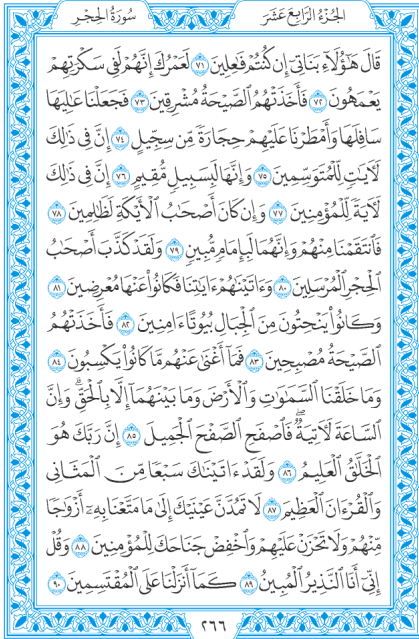 الجُزْءُ الرَّابِعَ عَشَرَ
سُورَةُ الحِجْرِ
قَالَ هَٰٓؤُلَآءِ بَنَاتِىٓ إِن كُنتُمْ فَٰعِلِينَ ٧١ لَعَمْرُكَ إِنَّهُمْ لَفِى سَكْرَتِهِمْ
يَعْمَهُونَ ٧٢ فَأَخَذَتْهُمُ ٱلصَّيْحَةُ مُشْرِقِينَ ٧٣ فَجَعَلْنَا عَٰلِيَهَا
سَافِلَهَا وَأَمْطَرْنَا عَلَيْهِمْ حِجَارَةً مِّن سِجِّيلٍ ٧٤ إِنَّ فِى ذَٰلِكَ
لَءَايَٰتٍ لِّلْمُتَوَسِّمِينَ ٧٥ وَإِنَّهَا لَبِسَبِيلٍ مُّقِيمٍ ٧٦ إِنَّ فِى ذَٰلِكَ
لَءَايَةً لِّلْمُؤْمِنِينَ ٧٧ وَإِن كَانَ أَصْحَٰبُ ٱلْأَيْكَةِ لَظَٰلِمِينَ ٧٨
فَٱنتَقَمْنَا مِنْهُمْ وَإِنَّهُمَا لَبِإِمَامٍ مُّبِينٍ ٧٩ وَلَقَدْ كَذَّبَ أَصْحَٰبُ
ٱلْحِجْرِ ٱلْمُرْسَلِينَ ٨٠ وَءَاتَيْنَٰهُمْ ءَايَٰتِنَا فَكَانُوا۟ عَنْهَا مُعْرِضِينَ ٨١
وَكَانُوا۟ يَنْحِتُونَ مِنَ ٱلْجِبَالِ بُيُوتًا ءَامِنِينَ ٨٢ فَأَخَذَتْهُمُ
ٱلصَّيْحَةُ مُصْبِحِينَ ٨٣ فَمَآ أَغْنَىٰ عَنْهُم مَّا كَانُوا۟ يَكْسِبُونَ ٨٤
وَمَا خَلَقْنَا ٱلسَّمَٰوَٰتِ وَٱلْأَرْضَ وَمَا بَيْنَهُمَآ إِلَّا بِٱلْحَقِّ ۗ وَإِنَّ
ٱلسَّاعَةَ لَءَاتِيَةٌ ۖ فَٱصْفَحِ ٱلصَّفْحَ ٱلْجَمِيلَ ٨٥ إِنَّ رَبَّكَ هُوَ
ٱلْخَلَّٰقُ ٱلْعَلِيمُ ٨٦ وَلَقَدْ ءَاتَيْنَٰكَ سَبْعًا مِّنَ ٱلْمَثَانِى
وَٱلْقُرْءَانَ ٱلْعَظِيمَ ٨٧ لَا تَمُدَّنَّ عَيْنَيْكَ إِلَىٰ مَا مَتَّعْنَا بِهِۦٓ أَزْوَٰجًا
مِّنْهُمْ وَلَا تَحْزَنْ عَلَيْهِمْ وَٱخْفِضْ جَنَاحَكَ لِلْمُؤْمِنِينَ ٨٨ وَقُلْ
إِنِّىٓ أَنَا ٱلنَّذِيرُ ٱلْمُبِينُ ٨٩ كَمَآ أَنزَلْنَا عَلَى ٱلْمُقْتَسِمِينَ ٩٠
٢٦٦